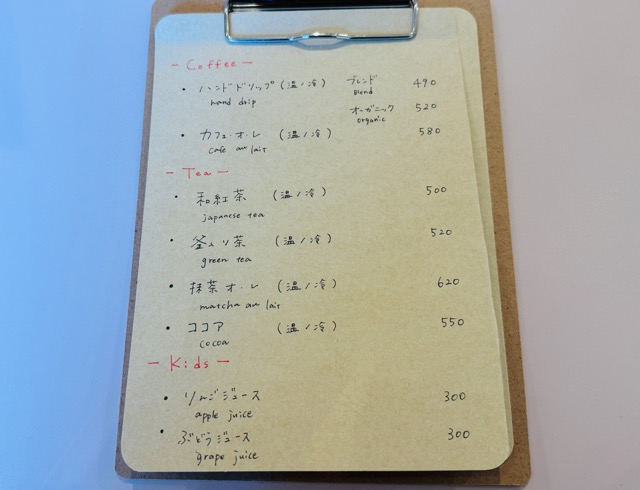 - Coffee -
・ハンドドリップ (温/冷) ブレンド 490
hand drip Blend
オーガニック 520
organic
・カフェ・オ・レ (温/冷) 580
cafe au lait
- Tea -
・和紅茶 (温/冷) 500
japanese tea
・釜入り茶 (温/冷) 520
green tea
・抹茶オ・レ (温/冷) 620
matcha au lait
・ココア (温/冷) 550
cocoa
- Kids -
・りんごジュース 300
apple juice
・ぶどうジュース 300
grape juice